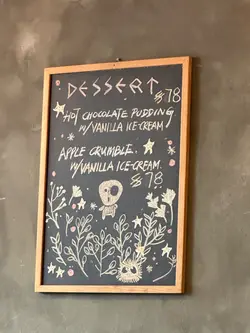 DESSERT
$78
HOT CHOCOLATE PUDDING
W/VANILLA ICE-CREAM
APPLE CRUMBLE.
W/VANILLA ICE-CREAM.
$78